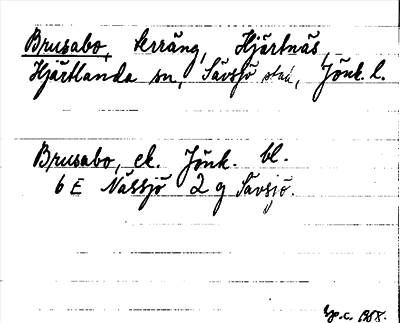 Brusabo, terräng, Hjärtnäs,
Hjärtlanda sn, Sävsjö stad, Jönk. l.
Brusabo, ek. Jönk. bl.
6 E Nässjö 2 g Sävsjö.